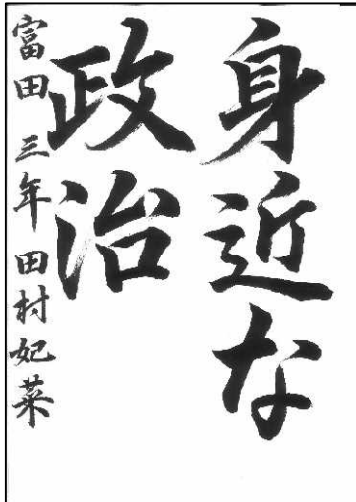 身近な
政治
富田 三年 田村妃菜